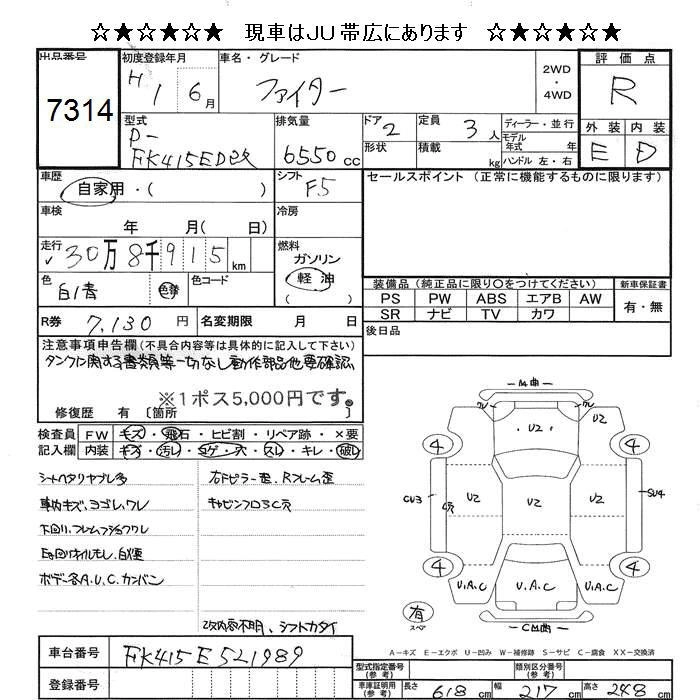 ☆★☆★☆★ 現車はJU帯広にあります ☆★☆★☆★
出品番号 7314
初度登録年月 H1 6月
車名・グレード ファイター
2WD・4WD
評価点 R
外装 E 内装 D
型式 P-FK415ED改
排気量 6550cc
ドア 2 形状
定員 3人
積載 kg
ディーラー・並行
モデル年式 年
ハンドル 左・右
車歴 自家用・( )
シフト F5
セールスポイント(正常に機能するものに限ります)
車検 年 月( 日)
冷房
走行 30万8千915km
燃料 ガソリン 軽油
色 白/青 色替 色コード
装備品(純正品に限り○をつけてください)
新車保証書 有・無
PS PW ABS エアB AW
SR ナビ TV カワ
R券 7,130円 名変期限 月 日
後日品
注意事項申告欄(不具合内容等は具体的に記入して下さい)
タンクに関する書類等一切なし動作部品他要確認
※1ポス5,000円です。
修復歴 有〔箇所 〕
検査員記入欄
FW キズ・飛石・ヒビ割・リペア跡・×要
内装 キズ・汚レ・コゲ・穴・スレ・キレ・破レ
シートヘタリヤブレ多
車内キズ、ヨゴレ、ワレ
下回り、フレム
ボデー各A.U.C.カンバン
右Fピラー歪、Rフレーム歪
キャビンフロアC穴
改内容不明、シフトカタイ
曲
ワレ U2 ワレ U2
4 4
CU3 U2 U2 U2 SU4
4 4
U.A.C U.A.C U.A.C
有 スペア
C曲
A-キズ E-エクボ U-凹み W-補修跡 S-サビ C-腐食 XX-交換済
車台番号 FK415E521989
登録番号
型式指定番号(参考) 類別区分番号(参考)
車庫証明用(参考) 長さ 618cm 幅 217cm 高さ 248cm